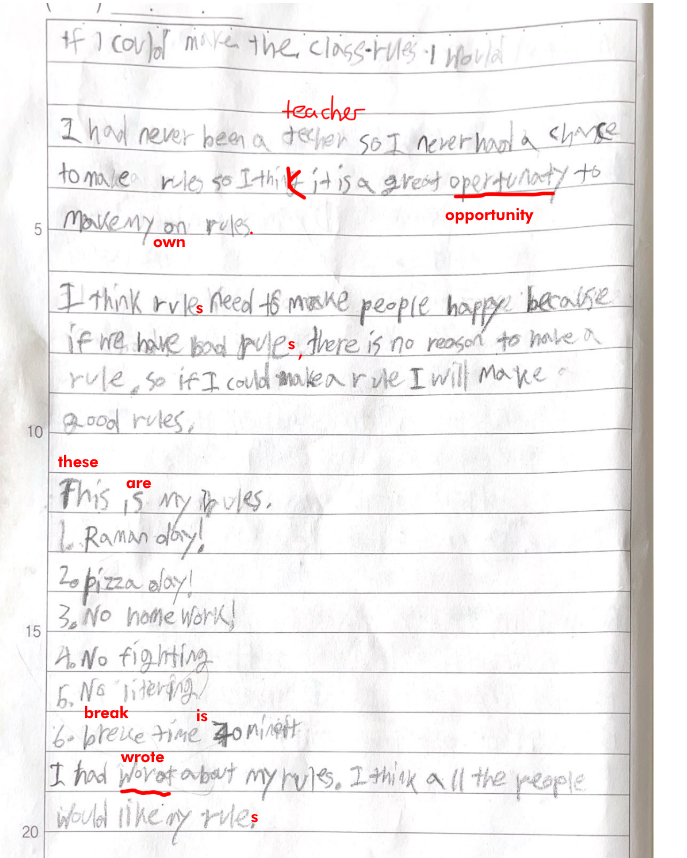 If I could make the class rules I would
teacher
I had never been a techer so I never had a chance
to make rules so I think it is a great opertunaty to
opportunity
5 make my on rules.
own
I think rules need to make people happy because
if we have bad rules, there is no reason to have a
rule, so if I could make a rule I will make a
10 good rules.
these are
This is my rules.
1. Raman day!
2. pizza day!
3. No home work!
15
4. No fighting
5. No litering
break is
6. breke time
wrote
I had worot about my rules. I think all the people
20 would like my rules